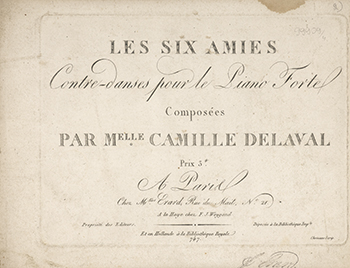 LES SIX AMIES
Contre-danses pour le Piano Forte
Composées
PAR MELLE CAMILLE DELAVAL
Prix 5f
A Paris
Chez Mlles Erard, Rue du Mail, No. 21
A la Haye chez F. J. Weygand
Propriété des Editeurs Déposée à la Bibliothèque Imple
Et en Hollande à la Bibliothèque Royale
767.